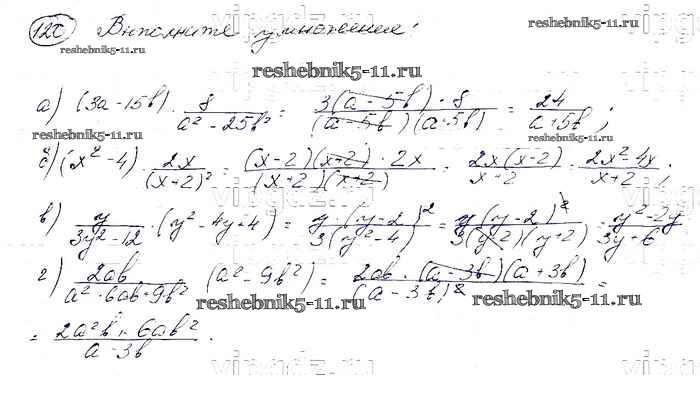 120 Выполните умножение:
reshebnik5-11.ru
reshebnik5-11.ru
reshebnik5-11.ru
а) (3a - 15b) · 8/(a² - 25b²) = 3(a - 5b) · 8/((a - 5b)(a + 5b)) = 24/(a + 5b);
б) (x² - 4) · 2x/(x+2)² = (x-2)(x+2) · 2x/((x+2)(x+2)) = 2x(x-2)/(x+2) = (2x² - 4x)/(x+2);
в) y/(3y² - 12) · (y² - 4y + 4) = y · (y-2)²/(3(y² - 4)) = y(y-2)²/(3(y-2)(y+2)) = (y² - 2y)/(3y + 6)
г) 2ab/(a² - 6ab + 9b²) · (a² - 9b²) = 2ab · (a - 3b)(a + 3b)/(a - 3b)² =
reshebnik5-11.ru
reshebnik5-11.ru
= (2a²b + 6ab²)/(a - 3b).
vipgdz.ru